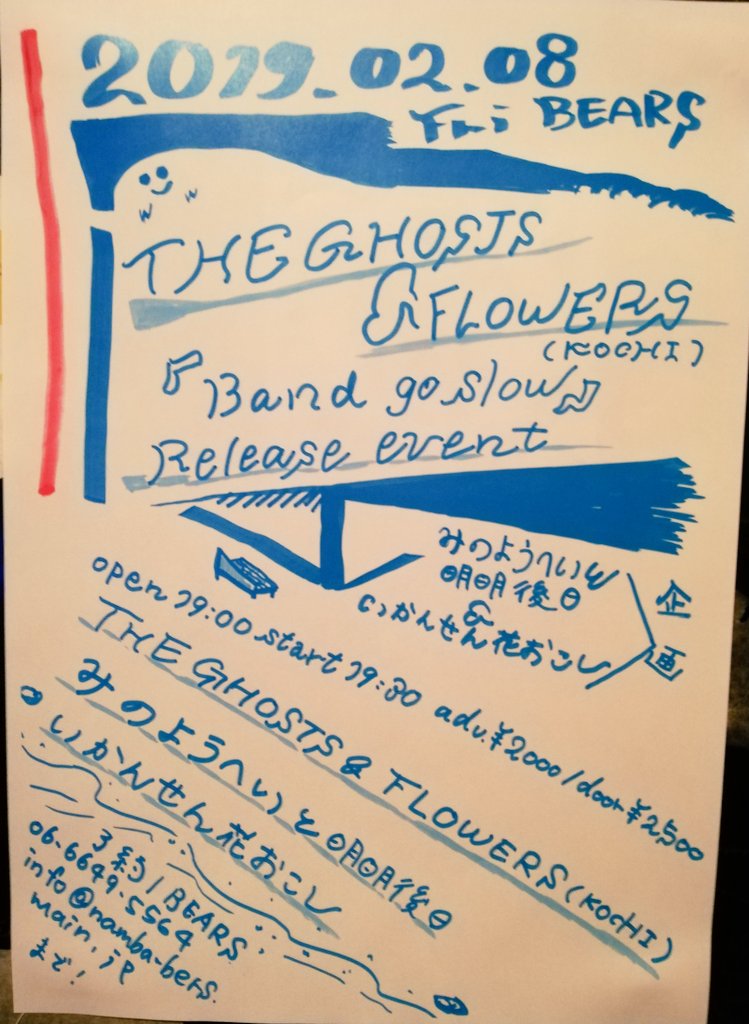 2019.02.08
Fri BEARS
THE GHOSTS
&FLOWERS
(KOCHI)
『Band go slow』
Release event
みのようへいと
明明後日
&
いかんせん花おこし
企画
open 19:00 start 19:30 adv.¥2000/door¥2500
THE GHOSTS & FLOWERS(KOCHI)
みのようへいと明明後日
いかんせん花おこし
予約/BEARS
06-6649-5564
info@namba-bers.
main.jp
まで!